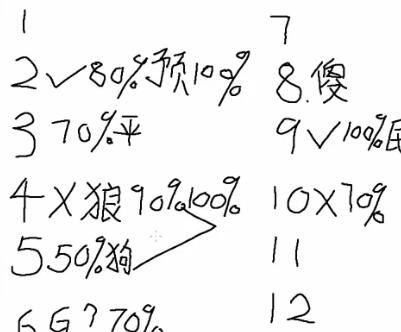 1
2✓80%预100%
3 70%平
4 X 狼90%100%
5 50%狗
6 G?70%
7
8.傻
9✓100%民
10X70%
11
12